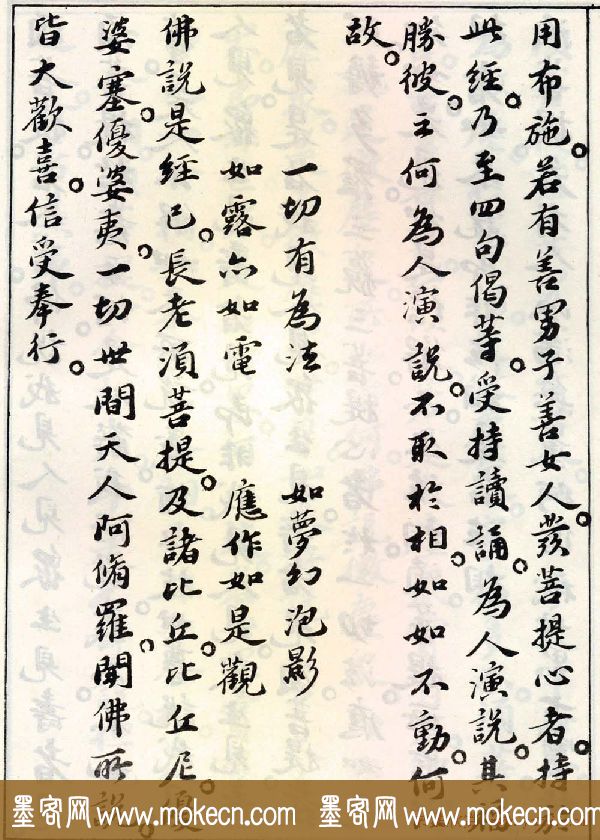 用布施。若有善男子善女人。發菩提心者。持於
此經。乃至四句偈等。受持讀誦。為人演說。其福
勝彼。云何為人演說。不取於相。如如不動。何
故。
一切有為法 如夢幻泡影
如露亦如電 應作如是觀
佛說是經已。長老須菩提。及諸比丘。比丘尼。優
婆塞。優婆夷。一切世間天人阿脩羅。聞佛所說。
皆大歡喜。信受奉行。
墨客网 www.mokecn.com 墨客网 www.mokecn.com